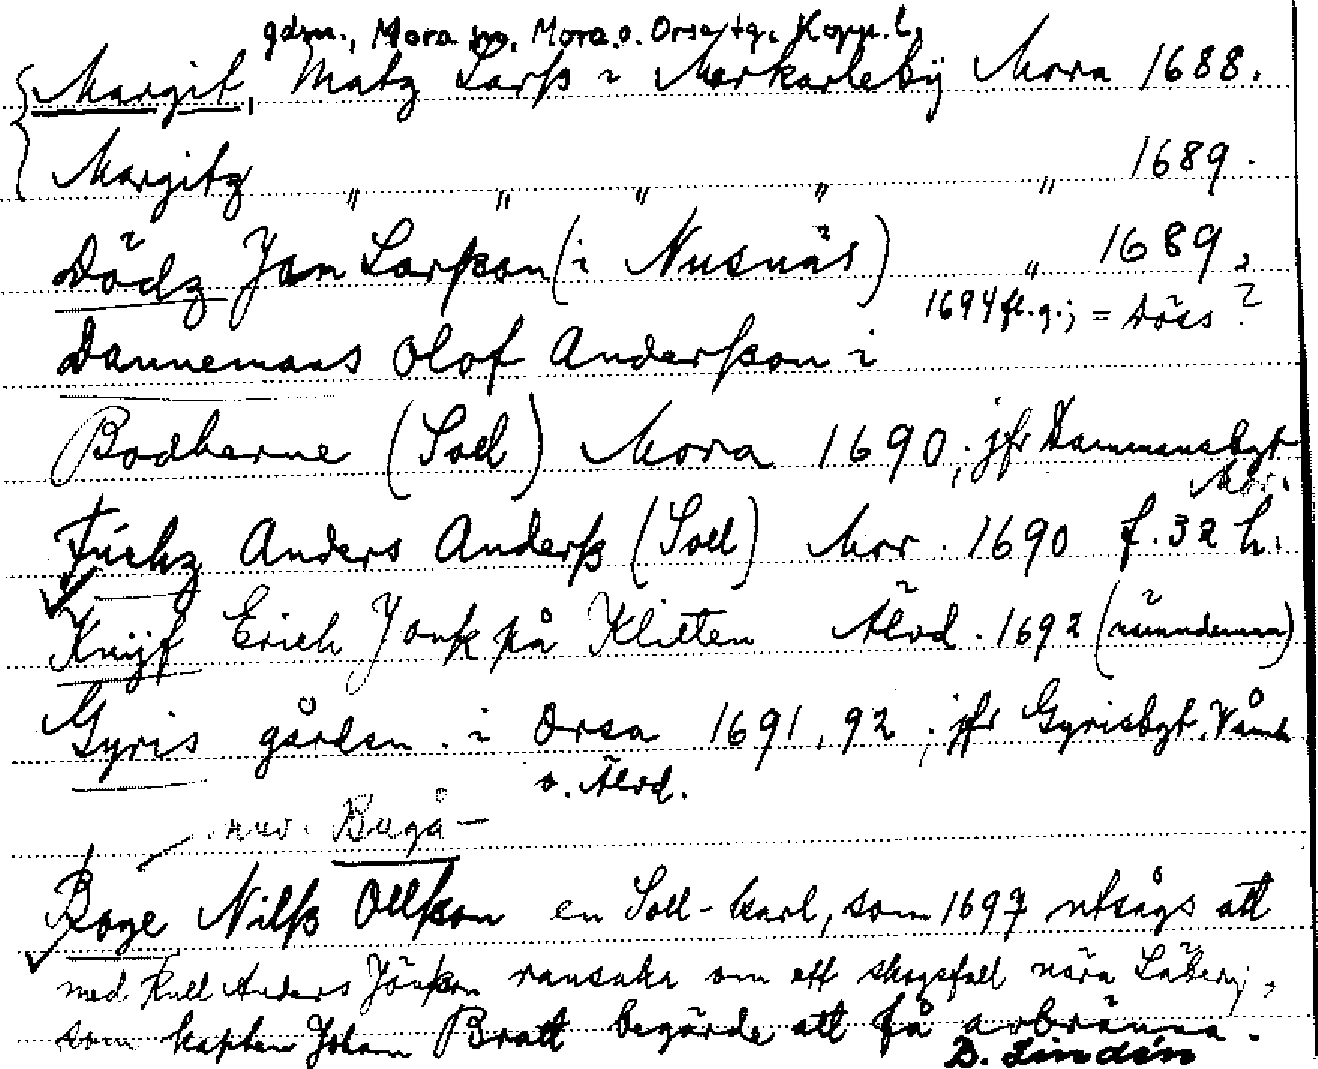 gdsn., Mora sn. Mora o. Orsa tg. Kopp. l.
Margit, Matz Larß i Merkarlebÿ Mora 1688.
Margitz " " " " " 1689.
Dödz Jon Larßon (i Nusnäs) " 1689,
1694 fl.g.; = Döss?
Dannemans Olof Anderßon i
Bodherne (Soll) Mora 1690; jfr Dammansbyt
Mor.
Fückz Anders Anderß (Soll) Mor. 1690 f. 32 h.
Knijf Erich Jonß på Klitten Älvd. 1692 (nämndeman)
Gyris gården i Orsa 1691, 92; jfr Gyrisbyt. Våmh
o. Älvd.
nuv. Bugå-
Boge Nilß Ollßon en Soll-karl, som 1697 utsågs att
med Kull Anders Jönßon ransaka om ett skogsfall nära Läberg,
som kapten Johan Bratt begärde att få avbränna.
B. Lindén